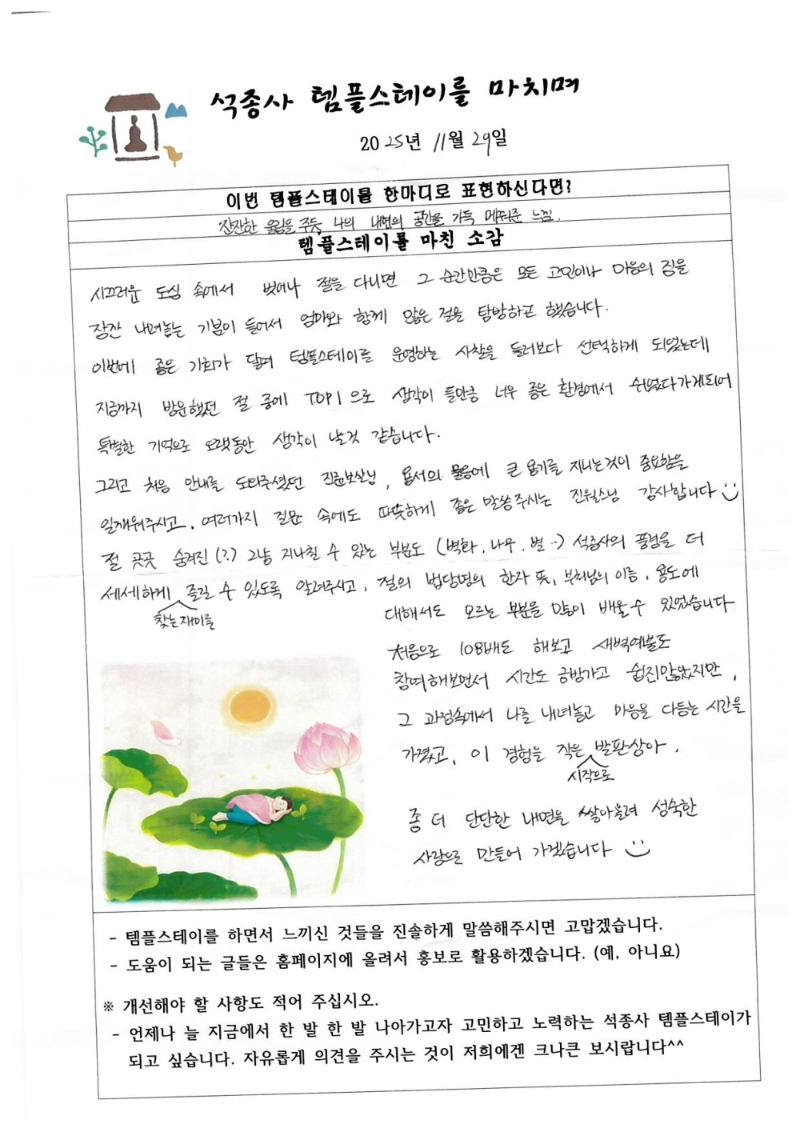 석종사 템플스테이를 마치며
2025년 11월 29일
이번 템플스테이를 한마디로 표현하신다면?
잔잔한 울림을 주듯, 나의 내면의 공간을 가득 메워준 느낌.
템플스테이를 마친 소감
시끄러운 도심 속에서 벗어나 절을 다니면 그 순간만큼은 모든 고민이나 마음의 짐을
잠깐 내려놓는 기분이 들어서 엄마와 함께 많은 절을 탐방하곤 했습니다.
이번에 좋은 기회가 닿여 템플스테이를 운영하는 사찰을 둘러보다 선택하게 되었는데
지금까지 방문했던 절 중에 TOP1으로 생각이 들만큼 너무 좋은 환경에서 쉬었다가게되어
특별한 기억으로 오랫동안 생각이 날것 같습니다.
그리고 처음 안내를 도와주셨던 진운보살님, 용서의 물음에 큰 용기를 지니는것이 중요함을
일깨워주시고, 여러가지 질문 속에도 따뜻하게 좋은 말씀주시는 진월스님 감사합니다
절 곳곳 숨겨진(?) 그냥 지나칠 수 있는 부분도 (벽화, 나무, 별→) 석종사의 풍경을 더
세세하게 즐길 수 있도록 알려주시고, 절의 법당명의 한자 뜻, 부처님의 이름, 용도에
찾는재미를
대해서도 모르는 부분을 많이 배울수 있었습니다.
처음으로 108배도 해보고 새벽예불도
참여해보면서 시간도 금방가고 쉽진않았지만,
그 과정속에서 나를 내려놓고 마음을 다듬는 시간을
가졌고, 이 경험을 작은 발판삼아.
시작으로
좀 더 단단한 내면을 쌓아올려 성숙한
사람으로 만들어 가겠습니다
- 템플스테이를 하면서 느끼신 것들을 진솔하게 말씀해주시면 고맙겠습니다.
- 도움이 되는 글들은 홈페이지에 올려서 홍보로 활용하겠습니다. (예, 아니요)
※ 개선해야 할 사항도 적어 주십시오.
- 언제나 늘 지금에서 한 발 한 발 나아가고자 고민하고 노력하는 석종사 템플스테이가
되고 싶습니다. 자유롭게 의견을 주시는 것이 저희에겐 크나큰 보시랍니다^^